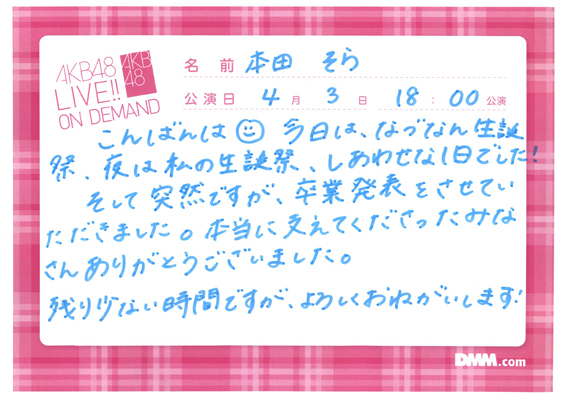 AKB48
LIVE!!
ON DEMAND
AKB
48
名 前 本田 そら
公演日 4 月 3 日 18 : 00 公演
こんばんは 今日は、なづなん生誕
祭、夜は私の生誕祭、しあわせな1日でした!
そして突然ですが、卒業発表をさせてい
ただきました。本当に支えてくださったみな
さんありがとうございました。
残り少ない時間ですが、よろしくおねがいします!
DMM.com